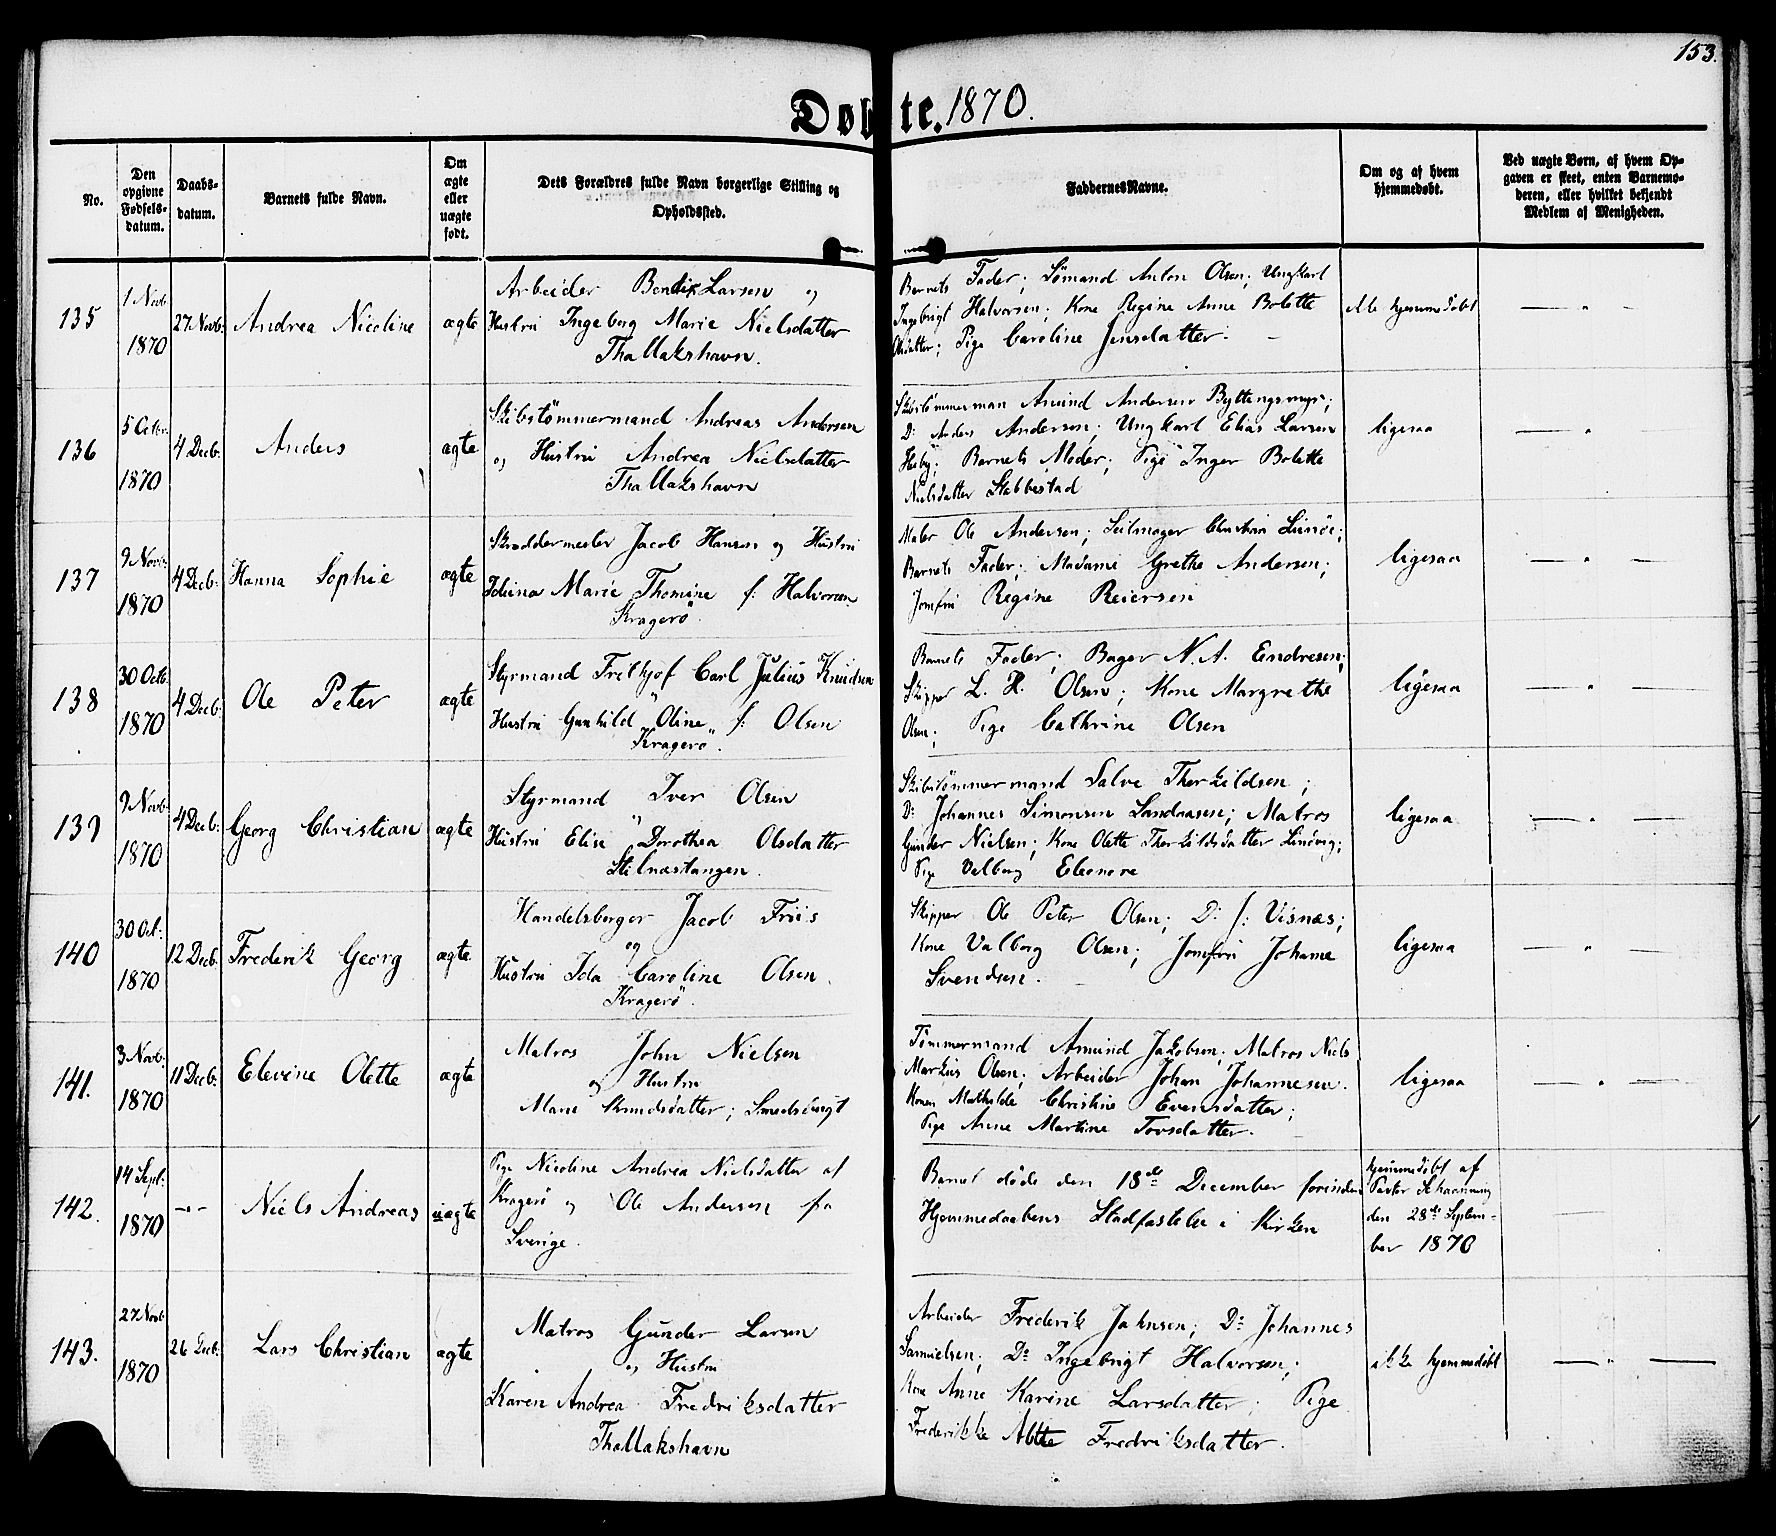 153.
Døbte. 1870.
No.
Den opgivne Fødselsdatum.
Daabsdatum.
Barnets fulde Navn.
Om ægte eller uægte født.
Dets Forældres fulde Navn borgerlige Stilling og Opholdssted.
Faddernes Navne.
Om og af hvem hjemmedøbt.
Ved uægte Børn, af hvem Opgaven er skeet, enten Barnemoderen, eller hvilket bekjendt Medlem af Menigheden.
135
1 Novb. 1870
27 Novb.
Andrea Nicoline
ægte
Arbeider Bendix Larsen og
Hustru Ingeborg Marie Nielsdatter
Thallakshavn.
Barnets Fader; Sömand Anton Olsen; Ungkarl
Ingebrigt Halvorsen; Kone Regine Anne Bolette
Olsdatter; Pige Caroline Jensdatter.
ikke hjemmedöbt
136
5 Octbr. 1870
4 Decb.
Anders
ægte
Skibstömmermand Andreas Andersen
og Hustru Andrea Nielsdatter
Thallakshavn
Skibstömmerman Amund Andersen Byttingsmyr;
D: Anders Andersen; Ungkarl Elias Larsen
Heiby; Barnets Moder; Pige Inger Bolette
Nielsdatter Stabbestad
ligesaa
137
9 Novb. 1870
4 Decb.
Hanna Sophie
ægte
Skreddermester Jacob Hansen og Hustru
Marie Thomine f: Halvorsen
Kragerö.
Maler Ole Andersen; Seilmager Christian Lunöe;
Barnets Fader; Madame Grethe Andersen;
Jomfru Regine Reiersen
ligesaa
138
30 Octb. 1870
4 Decb.
Ole Peter
ægte
Styrmand Frithjof Carl Julius Knudsen
Hustru Gunhild Oline f: Olsen
Kragerö.
Barnets Fader; Bager N. A. Endresen;
Skipper L. H. Olsen; Kone Margrethe
Olsen; Pige Cathrine Olsen
ligesaa
139
9 Novb. 1870
4 Decb.
Georg Christian
ægte
Styrmand Iver Olsen
Hustru Elise Dorothea Olsdatter
Stilnæstangen.
Skibstömmermand Salve Therkildsen;
D: Johannes Simonsen Sandaasen; Matros
Gunder Nielsen; Kone Olette Therkildsdatter Lindvig;
Pige Valborg Eleonore
ligesaa
140
30 Oct. 1870
12 Decb.
Frederik Georg
ægte
Handelsborger Jacob Friis
og
Hustru Ida Caroline Olsen.
Kragerö.
Skipper Ole Peter Olsen; D: f: Visnæs;
Kone Valborg Olsen; Jomfru Johanne
Svendsen.
ligesaa
141.
3 Novb. 1870
11 Decb.
Elevine Olette
ægte
Matros John Nielsen
og Hustru
Marie Knudsdatter; Smedsbugt
Tömmermand Amund Jakobsen; Matros Niels
Markus Olsen; Arbeider Johan Johannesen.
Konen Mathilde Christine Evensdatter;
Pige Anne Martine Torsdatter.
ligesaa
142.
14 Sept. 1870
Niels Andreas
uægte
Pige Nicoline Andrea Nielsdatter af
Kragerö og Ole Andersen fra
Sverige.
Barnet döde den 18de December forinden
Hjemmedaabens Stadfæstelse i Kirken
hjemmedöbt af
Pastor Schanning
den 28de Septem-
ber 1870
143.
27 Novb. 1870
26 Decb.
Lars Christian
ægte
Matros Gunder Larsen
og Hustru
Karen Andrea Fredriksdatter
Thallakshavn
Arbeider Frederik Jahnsen; D: Johannes
Samuelsen; D: Ingebrigt Halvorsen;
Kone Anne Karine Larsdatter; Pige
Frederikke Fredriksdatter.
ikke hjemmedöbt